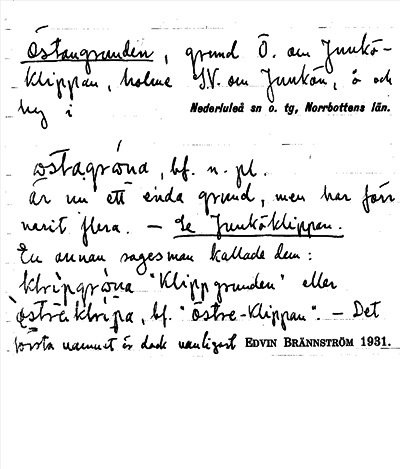 Östangrunden, grund Ö. om Junkö-
klippan, holme S.V. om Junkön, ö och
hg i Nederluleå sn o. tg, Norrbottens län.
ostagróna, bf. n. pl.
är nu ett enda grund, men har förr
varit flera. — Se Junköklippan.
En annan sagesman kallade dem:
klripgróna "Klippgrunden" eller
östreklripa, bf. "Östre-Klippan". — Det
första namnet är dock vanligast EDVIN BRÄNNSTRÖM 1931.